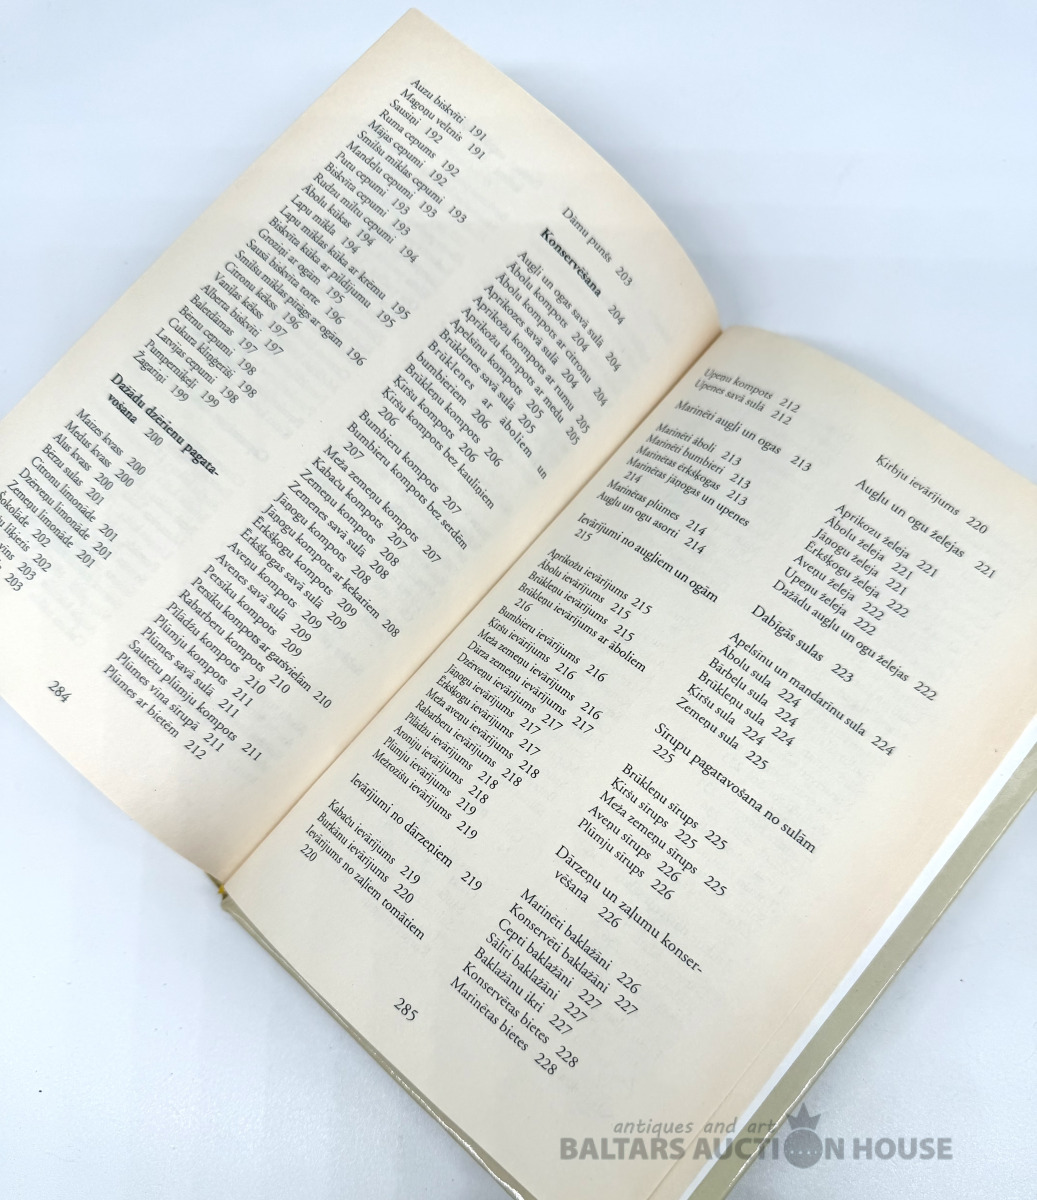 Auzu biskvīti 191
Magoņu veltnis 191
Sausiņi 192
Ruma cepums 192
Mājas cepumi 192
Smilšu mīklas cepumi 193
Mandeļu cepumi 193
Putu cepumi 193
Biskvīta cepumi 193
Rudzu miltu cepumi 194
Ābolu kūkas 194
Lapu mīkla 194
Lapu mīklas kūka ar krēmu 195
Biskvīta kūka ar pildījumu 195
Groziņi ar ogām 195
Sausā biskvīta torte 196
Smilšu mīklas pīrāgs ar ogām 196
Citronu kēkss 196
Vaniļas kēkss 197
Alberta biskvīti 197
Baletdāmas 197
Bērnu cepumi 198
Cukura kliņģerīši 198
Latvijas cepumi 198
Pumperniķeļi 199
Žagariņi 199
Dažādu dzērienu pagata-
vošana 200
Maizes kvass 200
Medus kvass 200
Alus kvass 200
Bērzu sulas 201
Citronu limonāde 201
Dzērveņu limonāde 201
Zemeņu limonāde 201
202
202
203
203
Dāmu punšs 203
Konservēšana 204
Augļi un ogas savā sulā 204
Ābolu kompots 204
Ābolu kompots ar citronu 204
Aprikozes savā sulā 204
Aprikožu kompots ar rumu 205
Aprikožu kompots ar medu 205
Apelsīnu kompots 205
Brūklenes savā sulā 205
Brūklenes ar āboliem un
bumbieriem 206
Brūkleņu kompots 206
Ķiršu kompots 206
Ķiršu kompots bez kauliņiem
206
Bumbieru kompots 207
Bumbieru kompots bez serdēm
207
Meža zemeņu kompots 207
Kabaču kompots 207
Zemeņu kompots 208
Zemenes savā sulā 208
Jāņogu kompots 208
Jāņogu kompots ar ķekariem 208
Ērkšķogu kompots 209
Ērkšķogas savā sulā 209
Aveņu kompots 209
Avenes savā sulā 209
Persiku kompots 209
Persiku kompots ar garšvielām 210
Rabarberu kompots 210
Pīlādžu kompots 210
Plūmju kompots 211
Plūmes savā sulā 211
Sautētu plūmju kompots 211
Plūmes vīna sīrupā 211
Plūmes ar bietēm 212
284
Upeņu kompots 212
Upenes savā sulā 212
Marinēti augļi un ogas 213
Marinēti āboli 213
Marinēti bumbieri 213
Marinētas ērkšķogas 213
Marinētas jāņogas un upenes
214
Marinētas plūmes 214
Augļu un ogu asorti 214
Ievārījumi no augļiem un ogām
215
Aprikožu ievārījums 215
Ābolu ievārījums 215
Brūkleņu ievārījums 215
Brūkleņu ievārījums ar āboliem
216
Bumbieru ievārījums 216
Ķiršu ievārījums 216
Meža zemeņu ievārījums 216
Dārza zemeņu ievārījums 217
Dzērveņu ievārījums 217
Jāņogu ievārījums 217
Ērkšķogu ievārījums 217
Meža aveņu ievārījums 218
Rabarberu ievārījums 218
Pīlādžu ievārījums 218
Aroniju ievārījums 218
Plūmju ievārījums 219
Mežrozīšu ievārījums 219
Ievārījumi no dārzeņiem 219
Kabaču ievārījums 219
Burkānu ievārījums 220
Ievārījums no zaļiem tomātiem
220
Ķirbju ievārījums 220
Augļu un ogu želejas 221
Aprikozu želeja 221
Ābolu želeja 221
Jāņogu želeja 221
Ērkšķogu želeja 222
Aveņu želeja 222
Upeņu želeja 222
Dažādu augļu un ogu želejas 222
Dabīgās sulas 223
Apelsīnu un mandarīnu sula 224
Ābolu sula 224
Bārbeļu sula 224
Brūkleņu sula 224
Ķiršu sula 224
Zemeņu sula 225
Sīrupu pagatavošana no sulām
225
Brūkleņu sīrups 225
Ķiršu sīrups 225
Meža zemeņu sīrups 225
Aveņu sīrups 226
Plūmju sīrups 226
Dārzeņu un zaļumu konser-
vēšana 226
Marinēti baklažāni 226
Konservēti baklažāni 227
Cepti baklažāni 227
Sālīti baklažāni 227
Baklažānu ikri 227
Konservētas bietes 228
Marinētas bietes 228
285
antiques and art
BALTARS AUCTION HOUSE